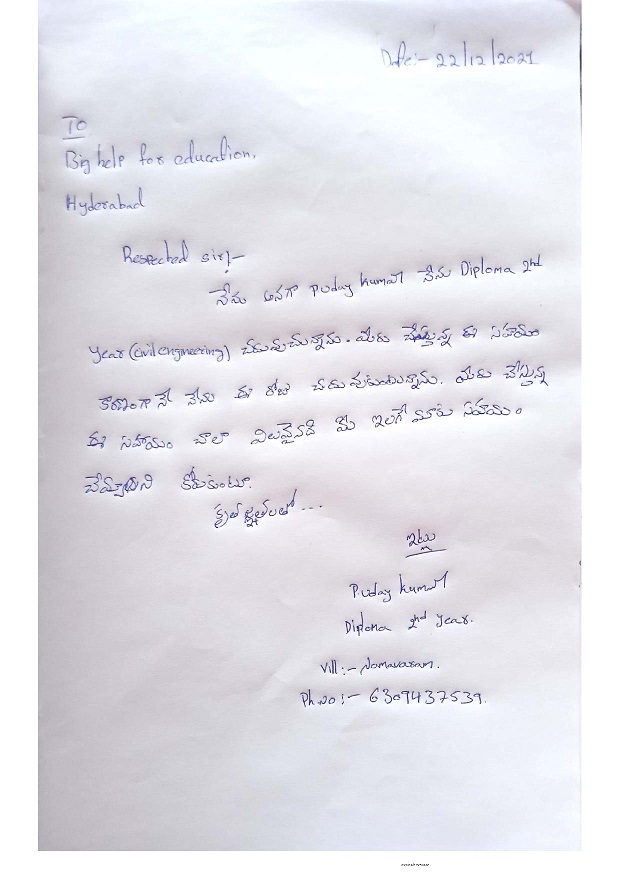 Date:- 22/12/2021
To
Big help for education,
Hyderabad
Respected sir,-
నేను అనగా P uday kumar నేను Diploma 2nd
Year (Civil engineering) చదువుచున్నాను. మీరు చేస్తున్న ఈ సహాయం
కారణంగా నే నేను ఈ రోజు చదువుకుంటున్నాను. మీరు చేస్తున్న
ఈ సహాయం చాలా విలువైనది మీ ఇలాగే మాకు సహాయం
చేయాలని కోరుకుంటూ.
కృతజ్ఞతలతో ---
ఇట్లు
P uday kumar
Diploma 2nd year.
Vill:- Nomavaram.
Ph no:- 6309437539.